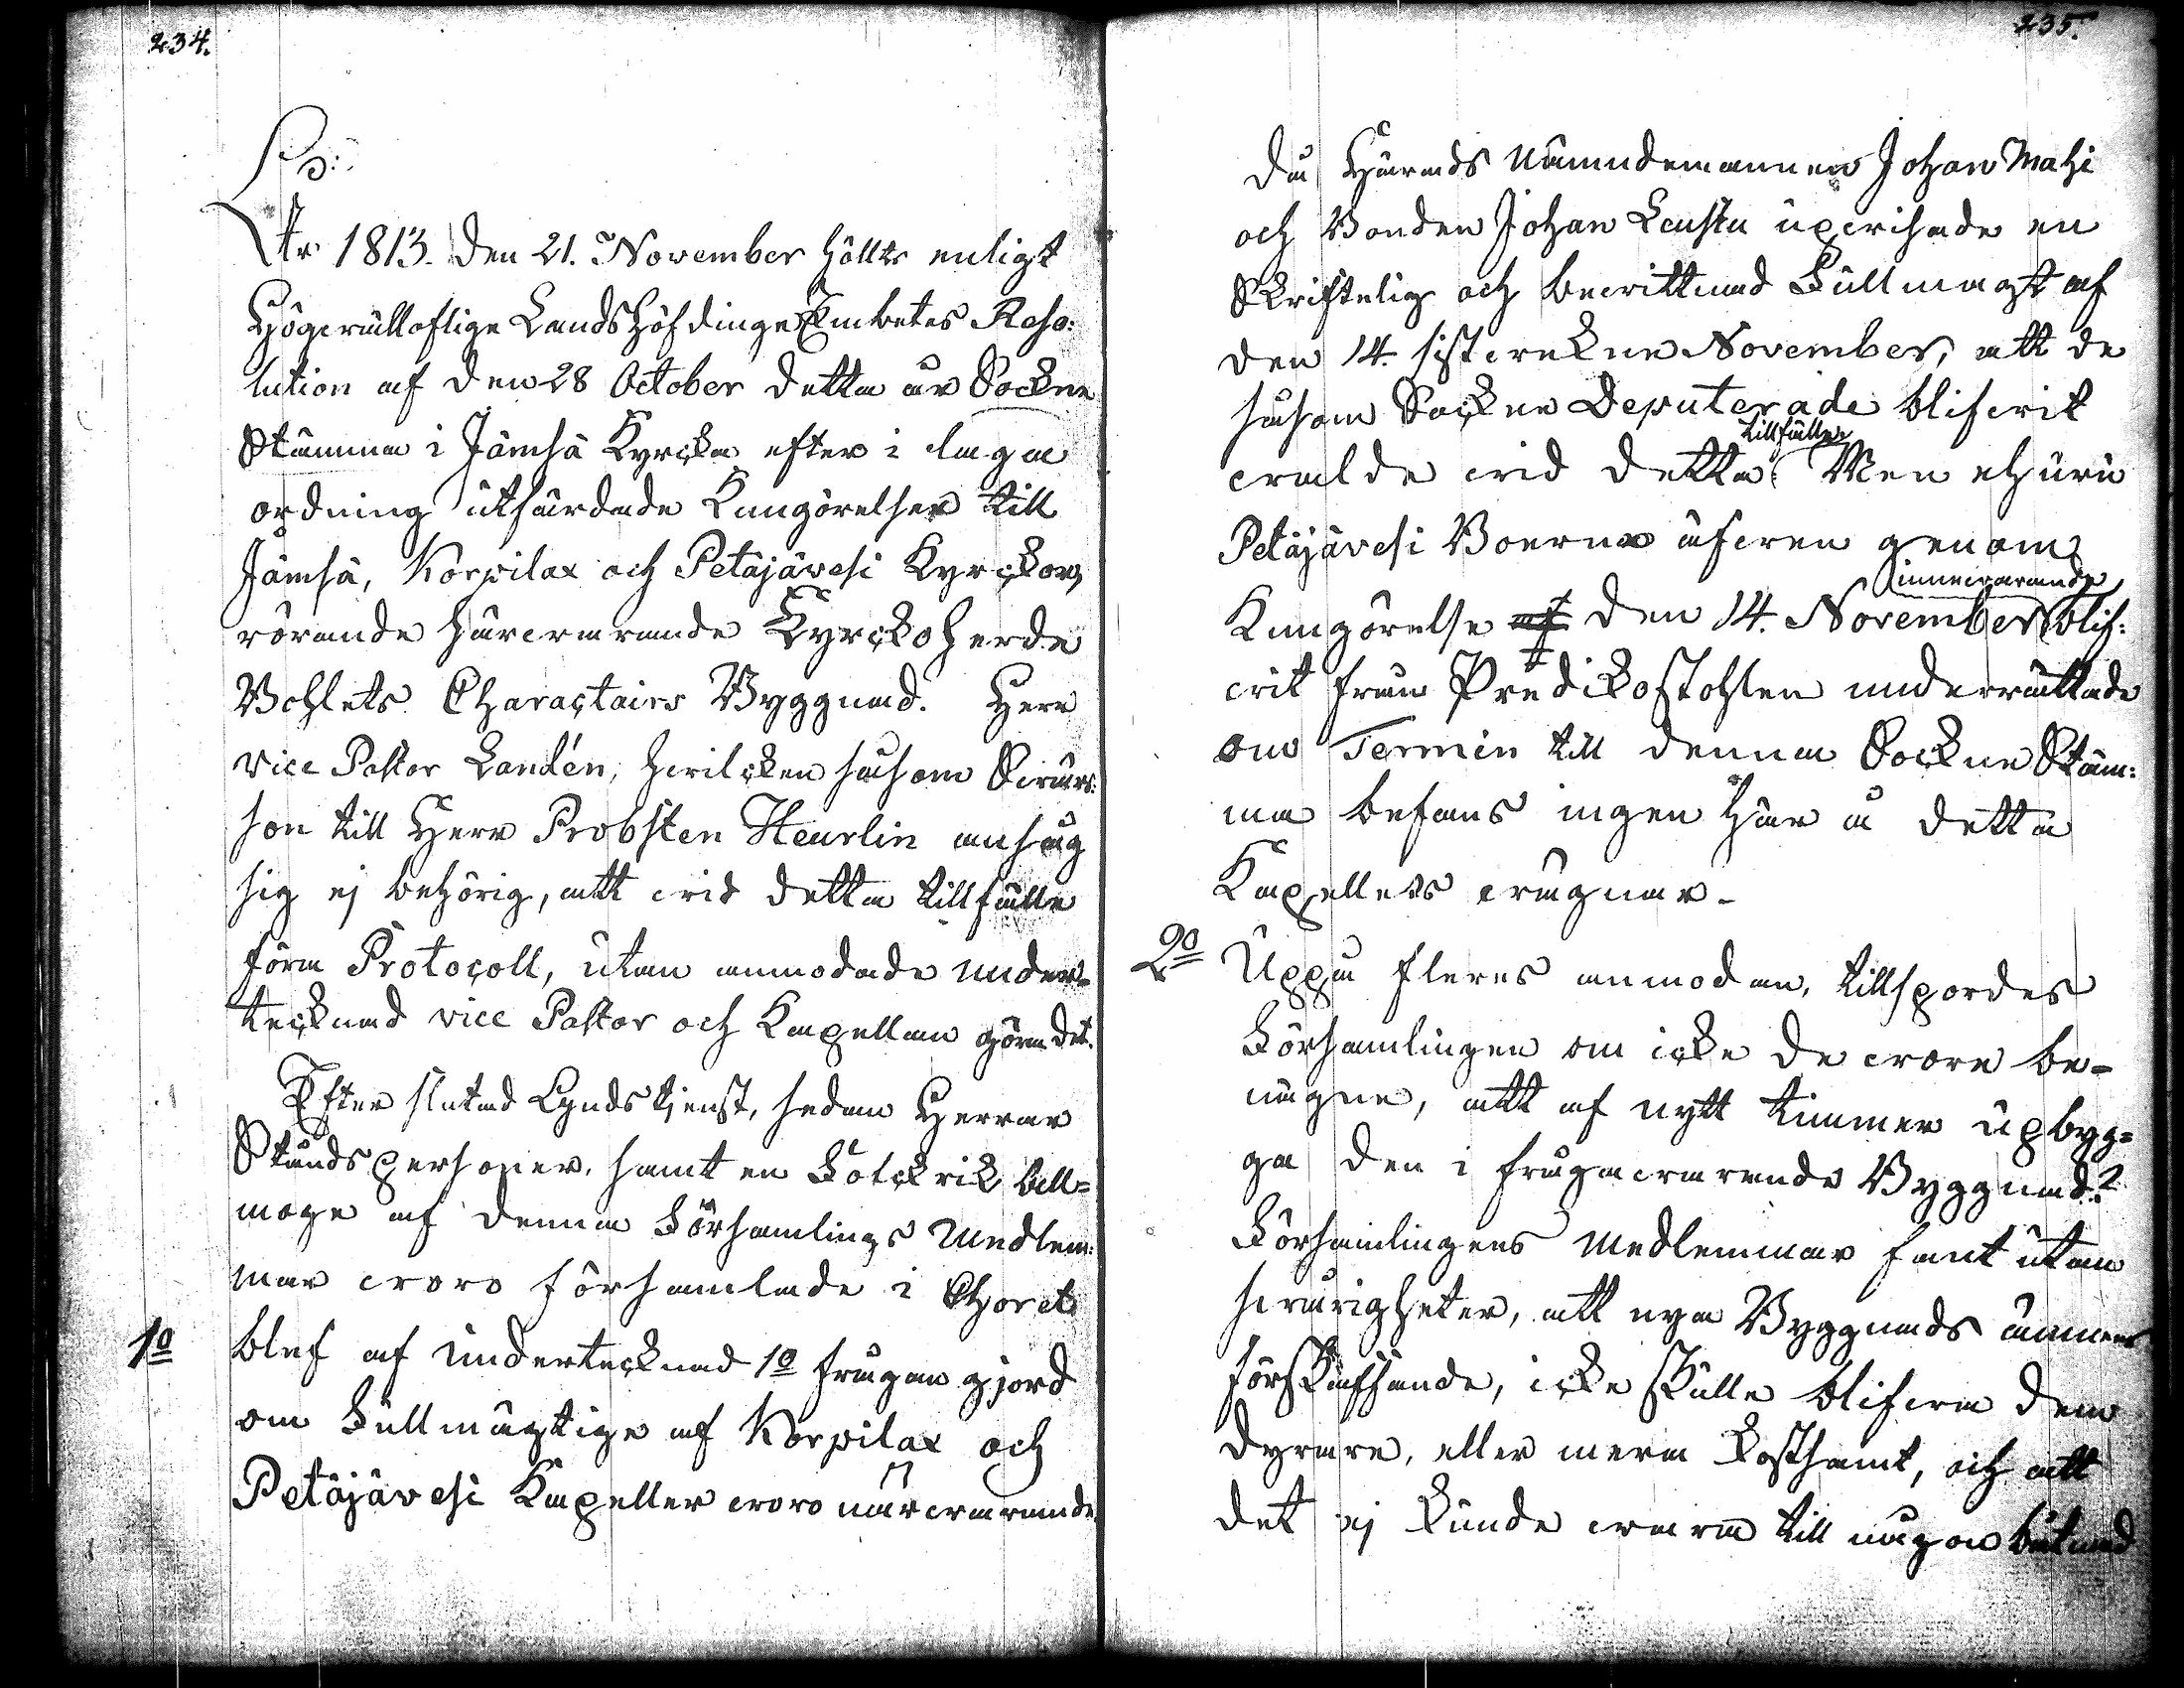 234.
Är 1813. den 21. November hölts enligt
Högvällofliga LandsHöfdinge Embetes Reso:
lution af den 28 October detta år Sockne
Stämma i Jämsä Kyrcka efter i laga
ordning utfärdade Kungörelser till
Jämsä, Korpilax och Petäjävesi Kyrckor,
rörande härvarande Kyrckoherde
Bohlets Charactairs Byggnad. Herr
vice Pastor Landén, hvilcken såsom Svär:
son till Herr Probsten Heurlin ansåg
sig ej behörig, att vid detta tillfälle
föra Protocoll, utan anmodade under-
tecknad vice Pastor och Kapellan göra det.
Efter slutad Gudstjenst, sedan Herrar
Ståndspersoner, samt en Folckrik all=
moge af denna Församlings Medlem:
mar voro församlade i Choret
1o blef af undertecknad 1o frågan gjord
om Fullmägtige af Korpilax och
Petäjävesi Kapeller voro närvarande.
235.
Då Härads Nämndemannen Johan Mahi
och Bonden Johan Leusta upvisade en
Skriftelig och bevittnad Fullmagt af
den 14. sistvekne November, att de
såsom Sockne Deputerade blifvit
tillfälle
valde vid detta. Men ehuru
Petäjävesi Boerne äfven genom
innevarande
Kungörelse af den 14. November blif:
vit från Predikostohlen underrättade
om Termin till denna Sockne Stäm:
ma befans ingen här å detta
Kapellets vägnar.
2o Uppå fleres anmodan, tillspordes
Församlingen om icke de vore be-
nägne, att af nytt timmer upbyg=
ga den i frågavarande Byggnad?
Församlingens Medlemmar fant utan
svårigheter, att nya Byggnads ämnens
förskaffande, icke skulle blifva dem
dyrare, eller mera kostsamt, och att
det ej kunde vara till någon båtnad